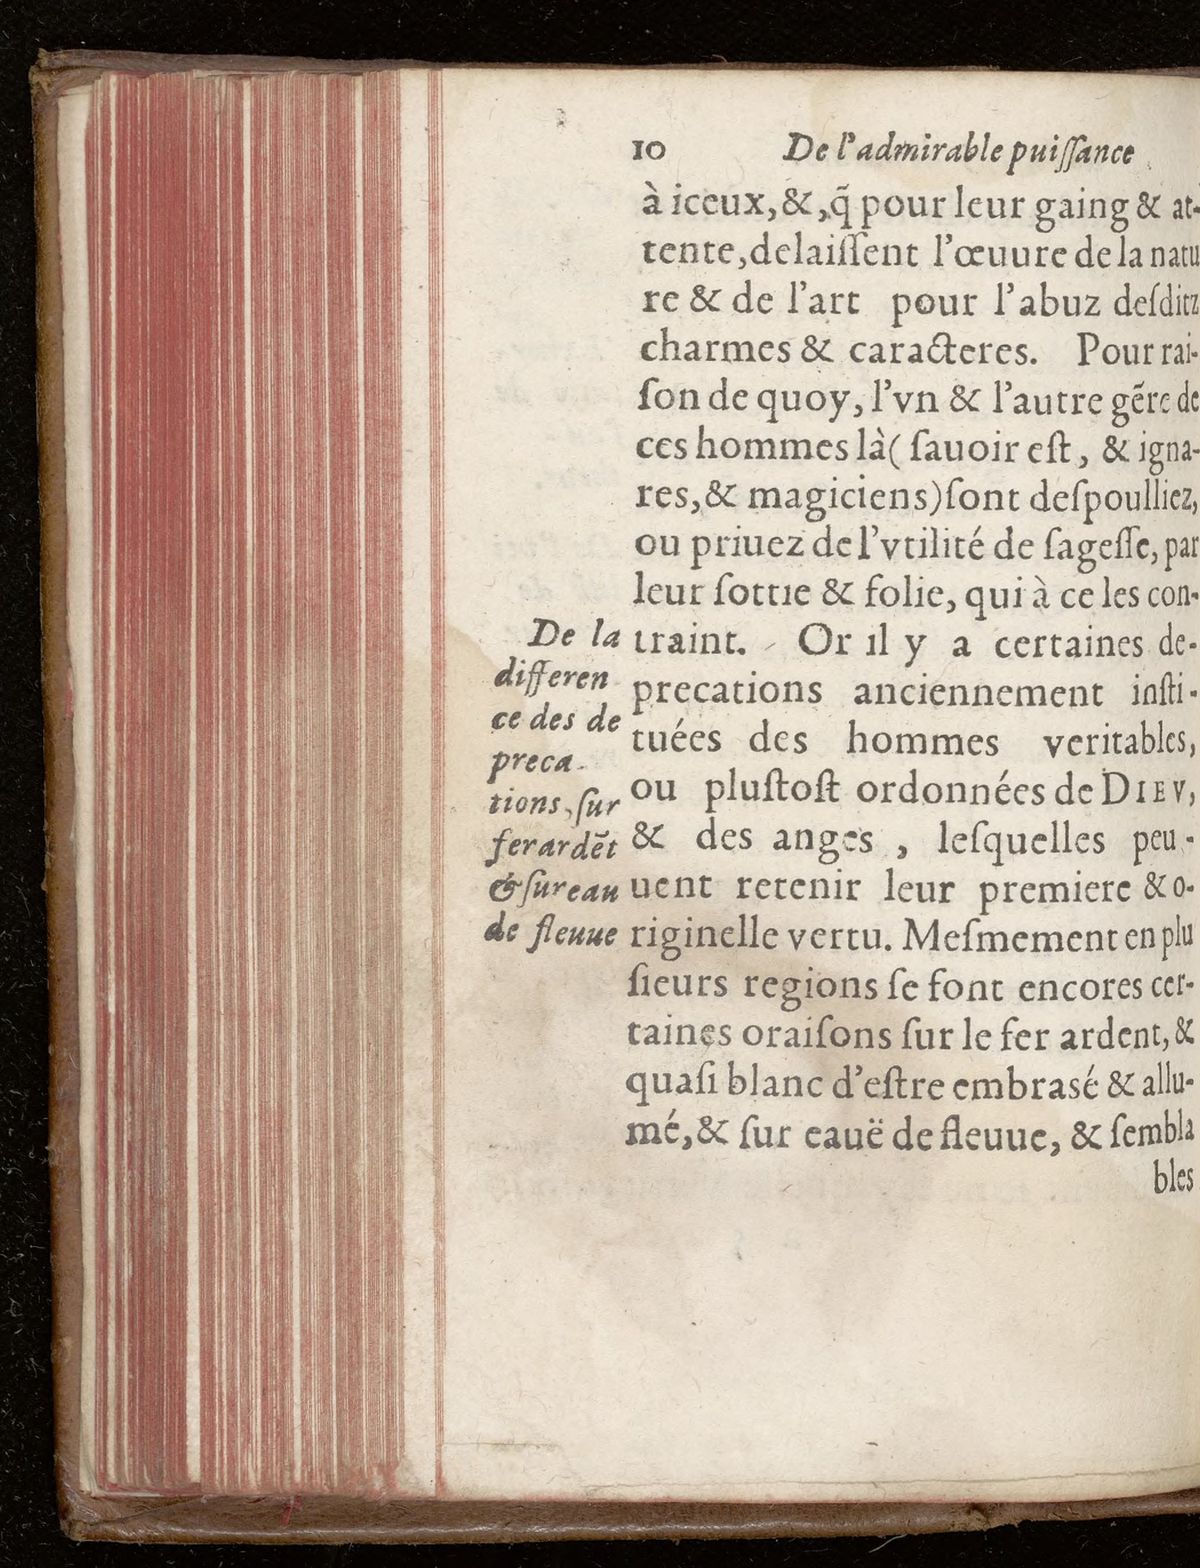 10 De l'admirable puiſſance
à iceux, &, q̃ pour leur gaing & at-
tente, delaiſſent l'œuure de la natu
re & de l'art pour l'abuz deſditz
charmes & caracteres. Pour rai-
ſon de quoy, l'vn & l'autre gẽre de
ces hommes là ( ſauoir eſt, & igna-
res, & magiciens) ſont deſpoulliez,
ou priuez de l'vtilité de ſageſſe, par
leur ſottie & folie, qui à ce les con-
traint. Or il y a certaines de-
precations anciennement inſti-
tuées des hommes veritables,
ou pluſtoſt ordonnées de DIEV,
& des anges , leſquelles peu-
uent retenir leur premiere & o-
riginelle vertu. Meſmement en plu
ſieurs regions ſe font encores cer-
taines oraiſons ſur le fer ardent, &
quaſi blanc d'eſtre embrasé & allu-
mé, & ſur eauë de fleuue, & ſembla
bles
De la
differen
ce des de
preca-
tions, ſur
fer ardẽt
& ſur eau
de fleuue